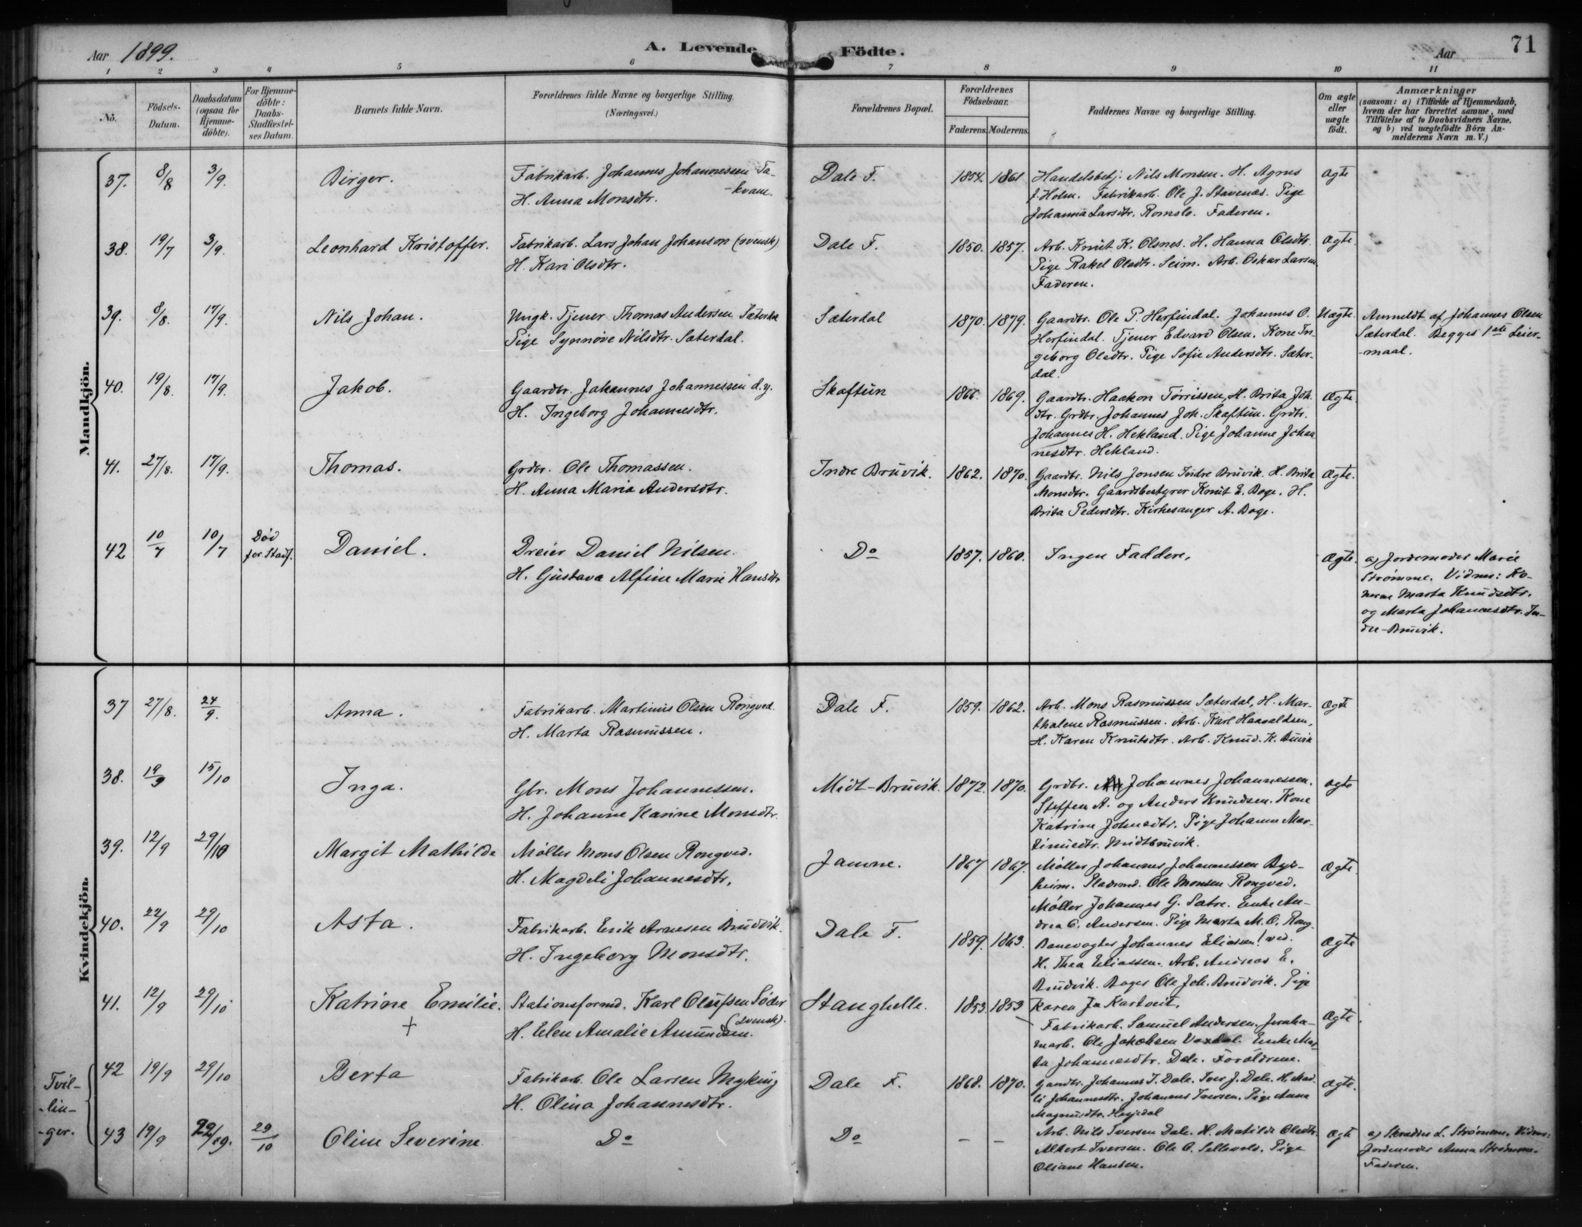 Aar 1899.
A. Levende Födte.
Aar
71
1 2 3 4 5 6 7 8 9 10 11
No.
Födsels-Datum.
Daabsdatum (ogsaa for Hjemmedöbte).
For Hjemmedöbte: Daabs-Stadfæstelses Datum.
Barnets fulde Navn.
Forældrenes fulde Navne og borgerlige Stilling. (Næringsvei.)
Forældrenes Bopæl.
Forældrenes Födselsaar.
Faderens. Moderens.
Faddernes Navne og borgerlige Stilling.
Om ægte eller uægte födt.
Anmærkninger
(saasom: a) i Tilfælde af Hjemmedaab, hvem der har forrettet samme, med Tilföielse af to Daabsvidners Navne, og b) ved uægtefödte Börn Anmelderens Navn m. V.)
Mandkjön.
37. 8/8 3/9. Birger.
Fabrikarb. Johannes Johannessen Ta-
-kvam.
H. Anna Monsdtr.
Dale F. 1854. 1861
Handelsbetj. Nils Monsen. H. Agnes
J. Holm. Fabrikarb. Ole J. Stavenes. Pige
Johanna Larsdtr. Romslo. Faderen.
ægte
38. 19/7 3/9. Leonhard Kristoffer.
Fabrikarb. Lars Johan Johanson (svensk)
H. Kari Olsdtr.
Dale F. 1850. 1857.
Arb. Knut K. Olsnes. H. Hanna Olsdtr.
Pige Rakel Olsdtr. Seim. Arb. Oskar Larsen
Faderen.
ægte
39. 8/8. 17/9. Nils Johan.
Ungk. Tjener Thomas Andersen Sæterdal
Pige Synnöve Nilsdtr. Sæterdal.
Sæterdal 1870. 1879.
Gaardbr. Ole P. Herfindal. Johannes O.
Herfindal. Tjener Edvard Olsen. Kone In-
geborg Olsdtr. Pige Sofie Andersdtr. Sæter-
dal.
Uægte
Anmeldt af Johannes Olsen
Sæterdal. Begges 1ste Leier-
-maal.
40. 19/8. 17/9. Jakob.
Gaardbr. Johannes Johannessen d.y.
H. Ingeborg Johannesdtr.
Skaftun 1866. 1869.
Gaardbr. Haakon Tørrissen, H. Brita Joh.
dtr. Grdbr. Johannes Joh. Skaftun. Grdbr.
Johannes H. Hekland. Pige Johanne Johan
nesdtr. Hekland.
Ægte
41. 27/8. 17/9. Thomas.
Grdbr. Ole Thomassen.
H. Anna Maria Andersdtr.
Indre Bruvik. 1862. 1870.
Gaardbr. Nils Jonsen Indre Bruvik. H. Brita
Monsdtr. Gaardbestyrer Knut E. Boge. H.
Brita Pedersdtr. Kirkesanger A. Boge.
Ægte.
42 10/7 10/7 Död
før Stadf.
Daniel.
Dreier Daniel Nilsen.
H. Gustava Alfine Marie Hansdtr
Do 1857. 1860.
Ingen Faddere,
Ægte.
a) Jordemoder Marie
Strømme. Vidner: Ko-
nerne Marta Knudsdtr.
og Marta Johannesdtr. In-
dre-Bruvik.
Kvindekjön.
37 27/8. 24/9. Anna.
Fabrikarb. Martinus Olsen Rongved.
H. Marta Rasmussen.
Dale F. 1859. 1862.
Arb. Mons Rasmussen Sæterdal, H. Mar-
thalene Rasmussen. Arb. Karl Haavaldsen,
H. Karen Knutsdtr. Arb. Knud K. Bruvik
Ægte
38. 19/9 15/10 Inga.
Gbr. Mons Johannessen.
H. Johanne Karine Monsdtr.
Midt-Bruvik. 1872. 1870.
Grdbr. Johannes Johannessen.
Steffen A. og Anders Knudsen. Kone
Katrine Johnsdtr. Pige Johanne Mar-
Midtbruvik.
ægte
39. 12/9 29/10 Margit Mathilde
Møller Mons Olsen Rongved.
H. Magdeli Johannesdtr.
Jamne. 1867 1867.
Møller Johannes Johannessen Byr-
heim. Ole Monsen Rongved.
Møller Johannes G. Sætre. Enke An-
drea O. Andersen. Pige Marta M. O. Rong-
ved.
Ægte
40. 22/9 29/10 Asta.
Fabrikarb. Erik Arnesen Bruvik.
H. Ingeborg Monsdtr.
Dale F. 1859. 1863.
Banevogter Johannes Eliasen
H. Thea Eliassen. Arb. Andreas E.
Bruvik. Bager Ole Joh. Bruvik. Pige
Ægte
41. 12/9 29/10 Katrine Emilie.
+
Stationsformd. Karl Olufsen Söder
(svensk).
H. Elen Amalie Amundsen.
Stanghelle. 1853. 1853
Fabrikarb. Samuel Andersen.
Ole Jakobsen Vaxdal. Enke Mar-
ta Johannesdtr. Dale. Forældrene.
Ægte.
Tvil-
-lin-
-ger.
42 19/9 29/10 Berta
Fabrikarb. Ole Larsen Myking
H. Olina Johannesdtr.
Dale F. 1868. 1870.
Gardbr. Johannes I. Dale. Iver J. Dale. H. Mad
li Johannesdtr. Johannes Iversen. Pige Anna
Magnusdtr.
ægte.
43 19/9 22/9. 29/10 Oline Severine
Do Do — —
Arb. Nils Iversen Dale. H. Matilde Olsdtr.
Albert Iversen. Ole O. Sellevold. Pige
Oliane Hansen.
ægte
a) L. Strømme. Vidner:
Jordemoder Anna Strømme.
Faderen.